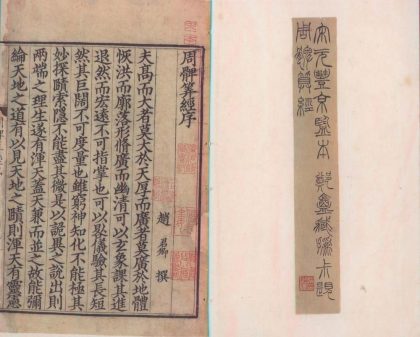 宋元豐京監本 鄭盦藏
周髀算經
周髀算經序
趙 君卿 撰
夫高而大者莫大於天厚而廣者莫廣於地體
恢洪而廓落形脩廣而幽清可以玄象課其進
退然而宏遠不可指掌也可以晷儀驗其長短
然其巨闊不可度量也雖窮神知化不能極其
妙探賾索隱不能盡其微是以詭異之說出則
兩端之理生遂有渾天蓋天兼而並之故能彌
綸天地之道有以見天地之賾則渾天有靈憲